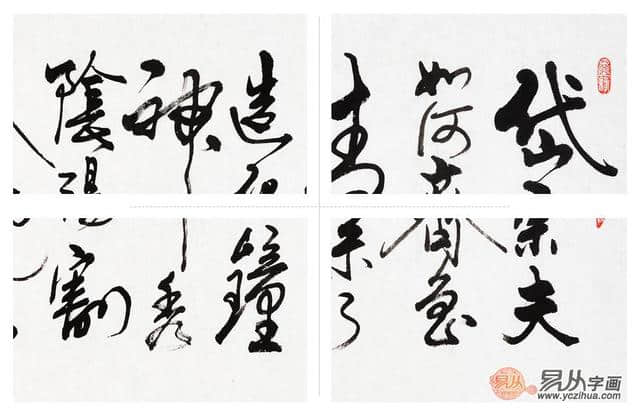 岱宗夫
如何齊魯
青未了
造化鐘
神秀
陰陽割
易从
易从字画
www.yczihua.com